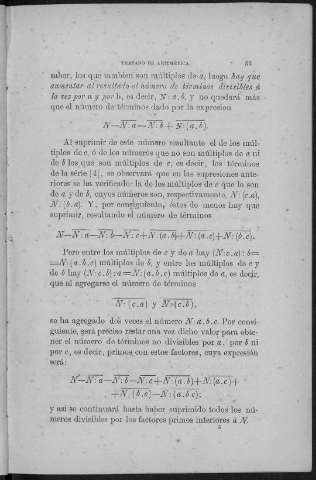 TRATADO DE ARITMÉTICA. 33
saber, los que tambien son múltiplos de a; luego hay que
aumentar al resultado el número de términos divisibles á
la vez por a y por b, es decir, N : a.b, y no quedará más
que el número de términos dado por la expresion
N—N : a—N : b + N : (a.b).
Al suprimir de este número resultante el de los múl-
tiplos de c, ó de los números que no son múltiplos de a ni
de b los que son múltiplos de c, es decir, los términos
de la série [4], se observará que en las supresiones ante-
riores se ha verificado la de los múltiplos de c que lo son
de a y de b, cuyos números son, respectivamente, N : (c.a),
N : (b.a). Y, por consiguiente, éstos de menos hay que
suprimir, resultando el número de términos
N—N : a—N : b—N : c+N : (a.b)+N : (a.c)+N : (b.c).
Pero entre los múltiplos de c y de a hay (N : c.a) : b=
=N : (a.b.c) múltiplos de b, y entre los múltiplos de c y
de b hay (N : c.b) : a=N : (a.b.c) múltiplos de a, es decir,
que al agregarse el número de términos
N : (c.a) y N : (c.b),
se ha agregado dos veces el número N : a.b.c. Por consi-
guiente, será preciso restar una vez dicho valor para obte-
ner el número de términos no divisibles por a, por b ni
por c, es decir, primos con estos factores, cuya expresión
será:
N—N : a—N : b—N : c+N : (a.b)+N : (a.c)+
+N : (b.c)—N : (a.b.c);
y así se continuará hasta haber suprimido todos los nú-
meros divisibles por los factores primos inferiores á N.